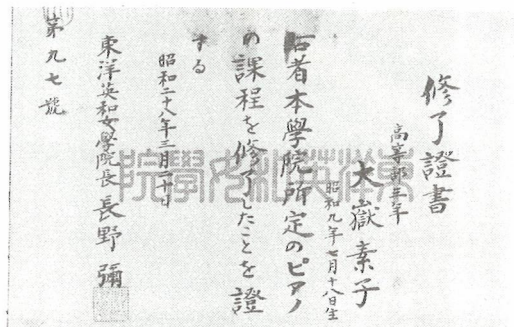 修了證書
高等部三年
大嶽素子
昭和九年七月十八日生
右者本學院所定のピアノ
の課程を修了したことを證
する
昭和二十八年三月二十日
東洋英和女學院長 長野彌
第九七號
東洋英和女學院